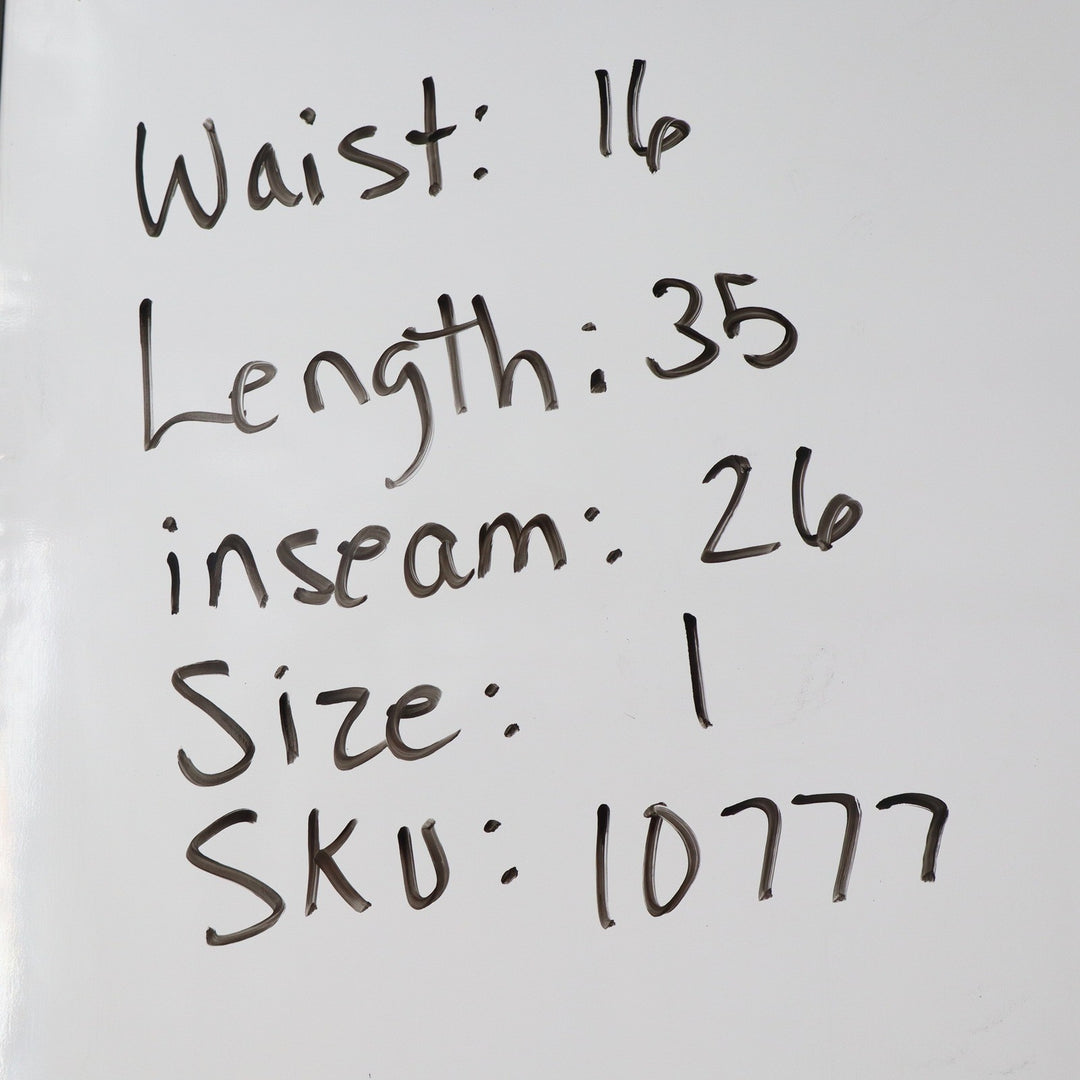 Waist: 16
Length: 35
inseam: 26
Size: 1
SKU: 10777